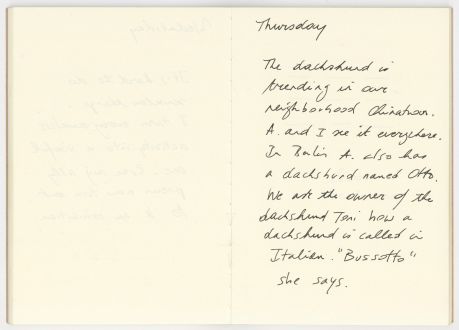 Thursday
The dachshund is
trending in our
neighborhood Chinatown.
A. and I see it everywhere.
In Berlin A. also has
a dachshund named Otto.
We ask the owner of the
dachshund Toni how a
dachshund is called in
Italian. "Bussotto"
she says.